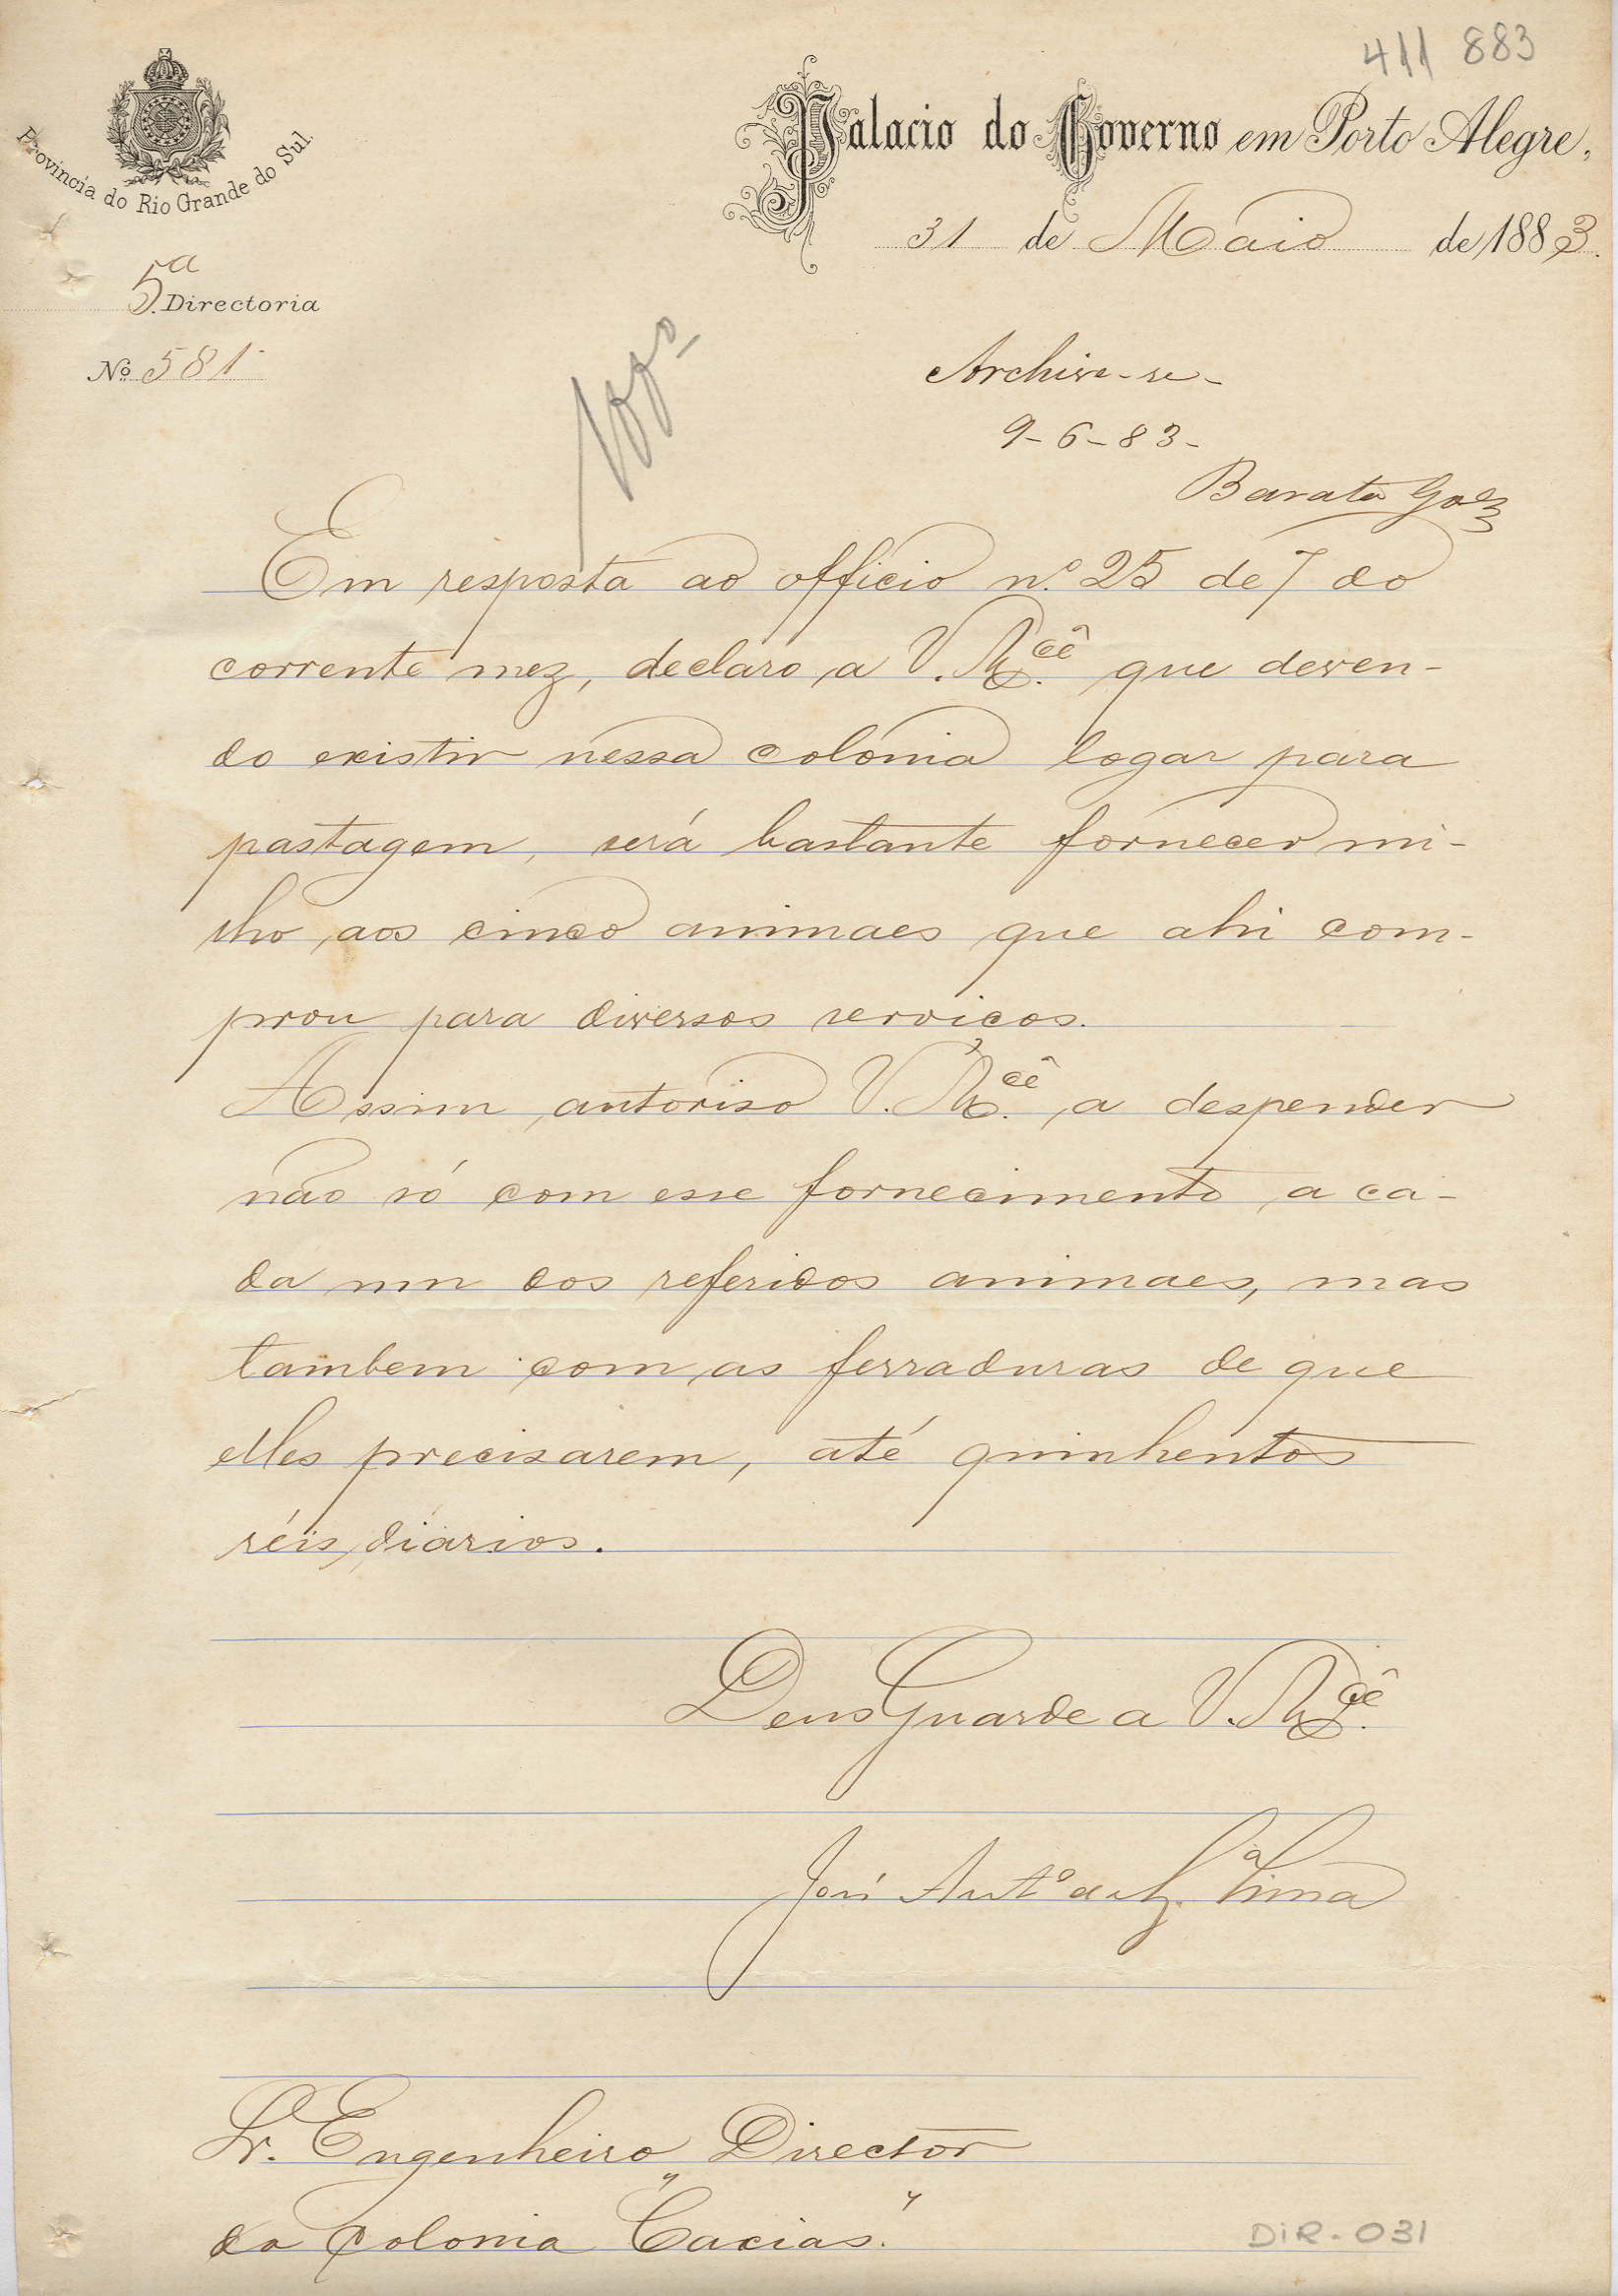 411 883
Provincia do Rio Grande do Sul
Palacio do Governo em Porto Alegre,
31 de Maio de 1883.
5.ª Directoria
Nº 581
Archive-se-
9-6-83-
Barata Goes
Em resposta ao officio n.º 25 de 7 do
corrente mez, declaro a V. M.cê que deven-
do existir nessa colonia logar para
pastagem, será bastante fornecer mi-
lho aos cinco animaes que ahi com-
prou para diversos serviços.
Assim autoriso V. M.cê a despender
não só com esse fornecimento a ca-
da um dos referidos animaes, mas
tambem com as ferraduras de que
elles precisarem, até quinhentos
réis diarios.
Deus Guarde a V. M.cê
José Ant.º de Lima
Sr. Engenheiro Director
da Colonia "Caxias".
DIR-031